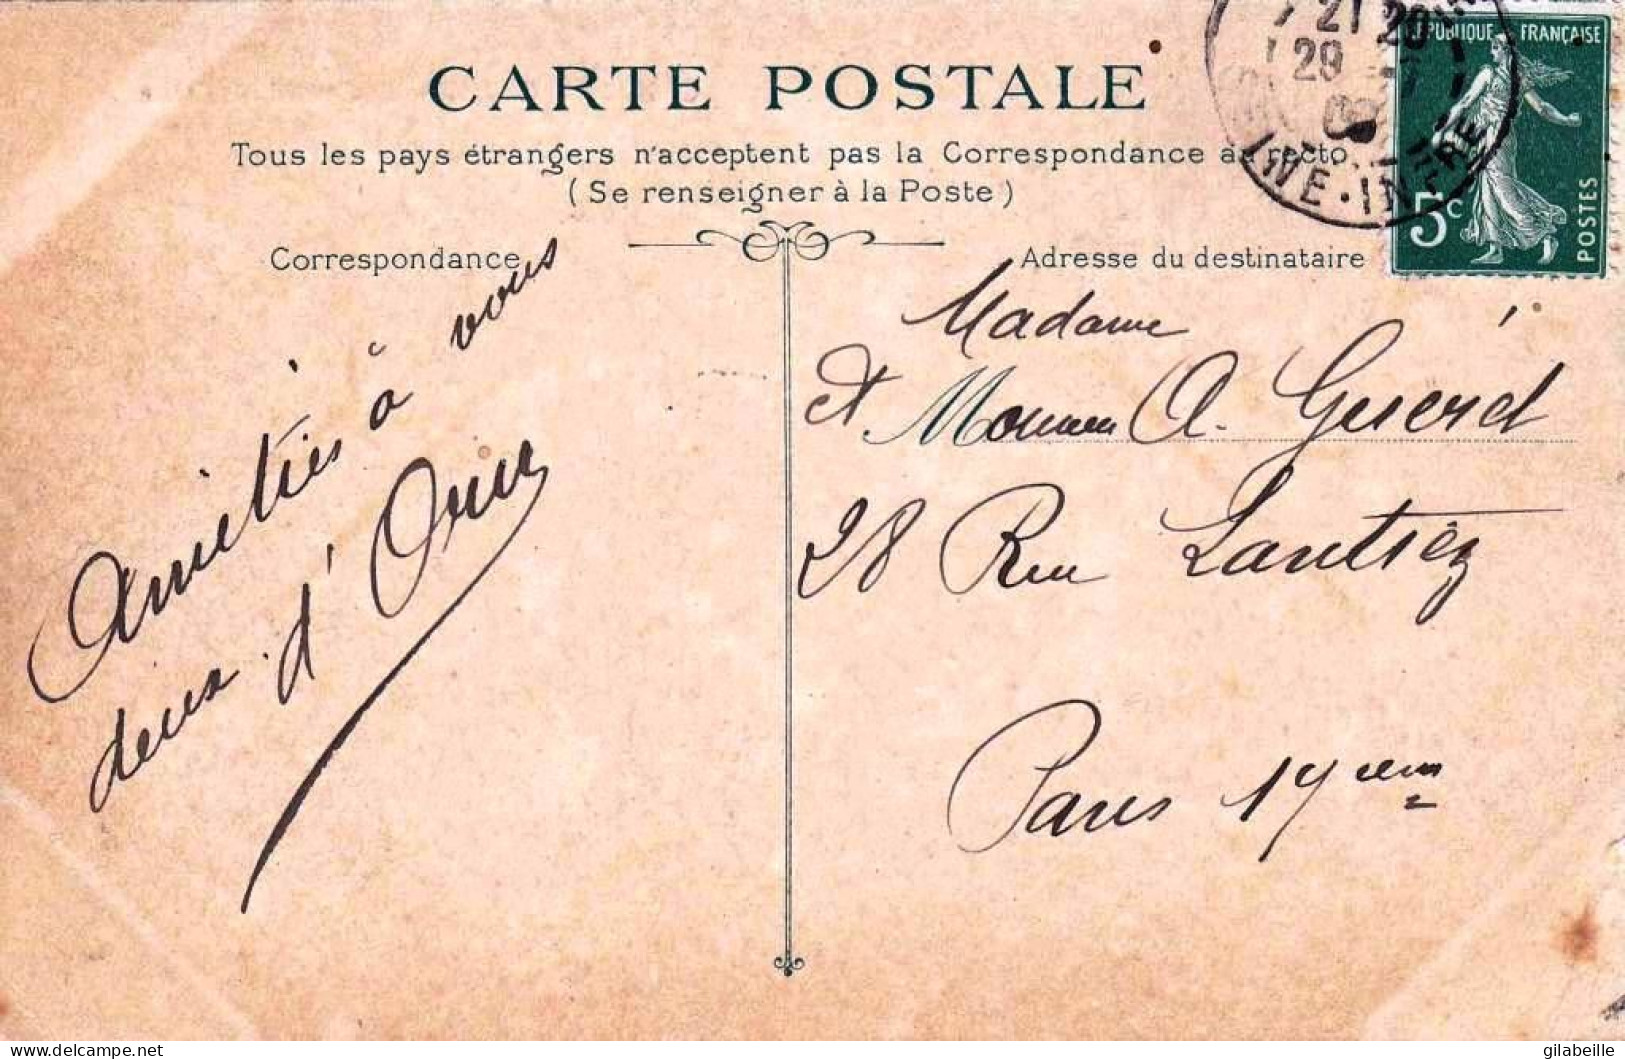 CARTE POSTALE
Tous les pays étrangers n'acceptent pas la Correspondance au recto
(Se renseigner à la Poste)
Correspondance
Adresse du destinataire
RÉPUBLIQUE FRANÇAISE
5c
POSTES
21 20
29
INE-INFRE
Amitiés à vous
deux d'
Madame
et A. Guéret
28 Rue Lantiez
Paris 17eme
delcampe.net
gilabeille